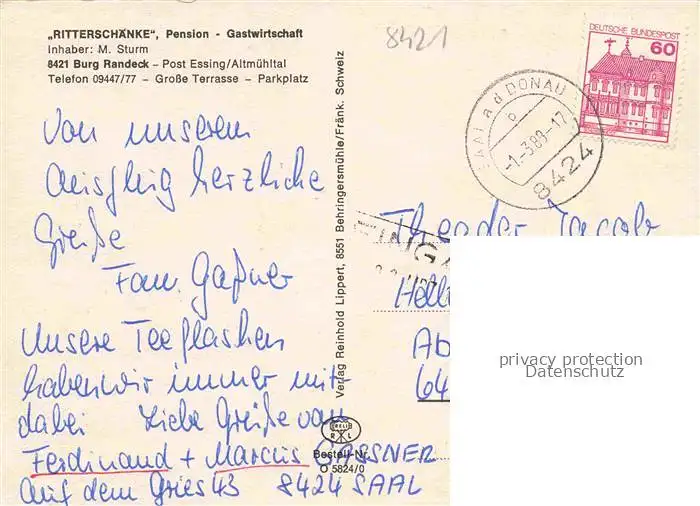 „RITTERSCHÄNKE“, Pension - Gastwirtschaft
Inhaber: M. Sturm
8421 Burg Randeck – Post Essing/Altmühltal
Telefon 09447/77 – Große Terrasse – Parkplatz
8421
DEUTSCHE BUNDESPOST
60
SAAL a d DONAU
b
-1-3.89-17
8424
Von unserem
Ausflug herzliche
Grüße
Fam Gaßner
Unsere Teeflaschen
haben wir immer mit
dabei Liebe Grüße von
Ferdinand + Marcus GASSNER
Auf dem Gries 43 8424 SAAL
Verlag Reinhold Lippert, 8551 Behringersmühle/Fränk. Schweiz
RELI
R L
Bestell-Nr.
O 5824/0
EING
Theodor Jacob
Hell
Ab
64
privacy protection
Datenschutz